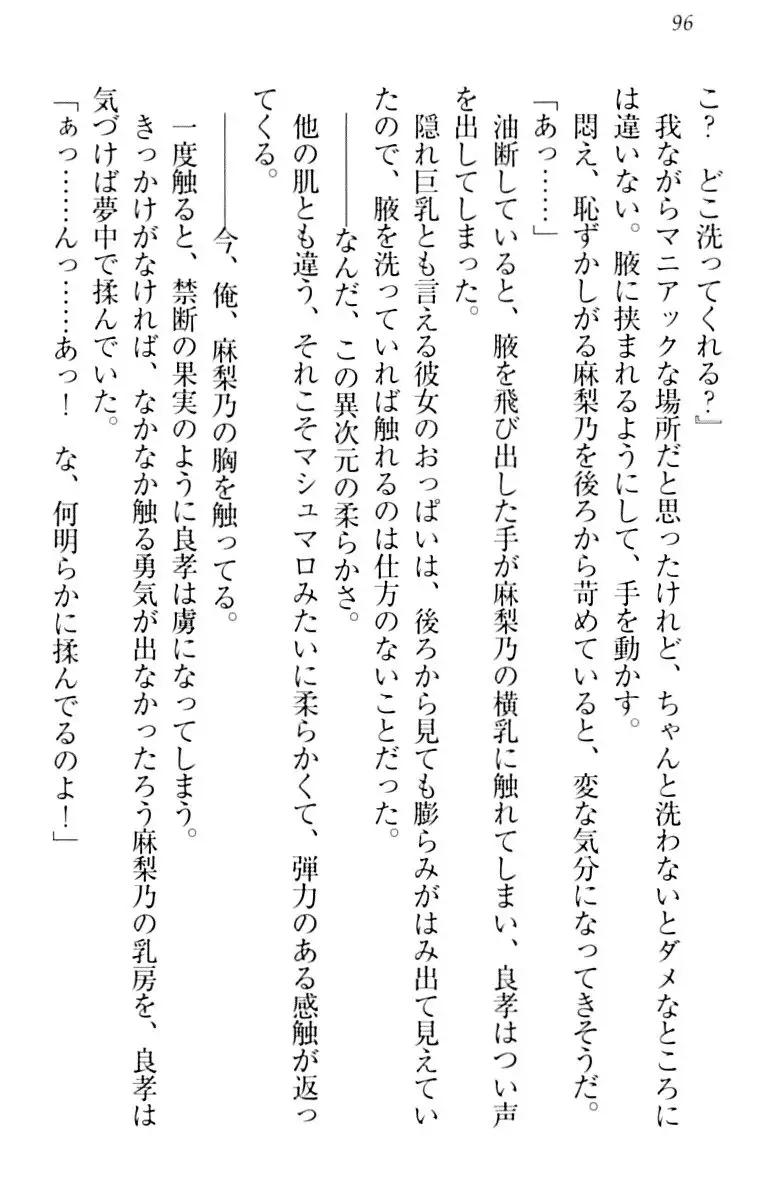 96
こ？　どこ洗ってくれる？』
　我ながらマニアックな場所だと思ったけれど、ちゃんと洗わないとダメなところに
は違いない。腋に挟まれるようにして、手を動かす。
　悶え、恥ずかしがる麻梨乃を後ろから苛めていると、変な気分になってきそうだ。
「あっ……」
　油断していると、腋を飛び出した手が麻梨乃の横乳に触れてしまい、良孝はつい声
を出してしまった。
　隠れ巨乳とも言える彼女のおっぱいは、後ろから見ても膨らみがはみ出て見えてい
たので、腋を洗っていれば触れるのは仕方のないことだった。
　――――なんだ、この異次元の柔らかさ。
　他の肌とも違う、それこそマシュマロみたいに柔らかくて、弾力のある感触が返っ
てくる。
　――――今、俺、麻梨乃の胸を触ってる。
　一度触ると、禁断の果実のように良孝は虜になってしまう。
　きっかけがなければ、なかなか触る勇気が出なかったろう麻梨乃の乳房を、良孝は
気づけば夢中で揉んでいた。
「ぁっ……んっ……あっ！　な、何明らかに揉んでるのよ！」